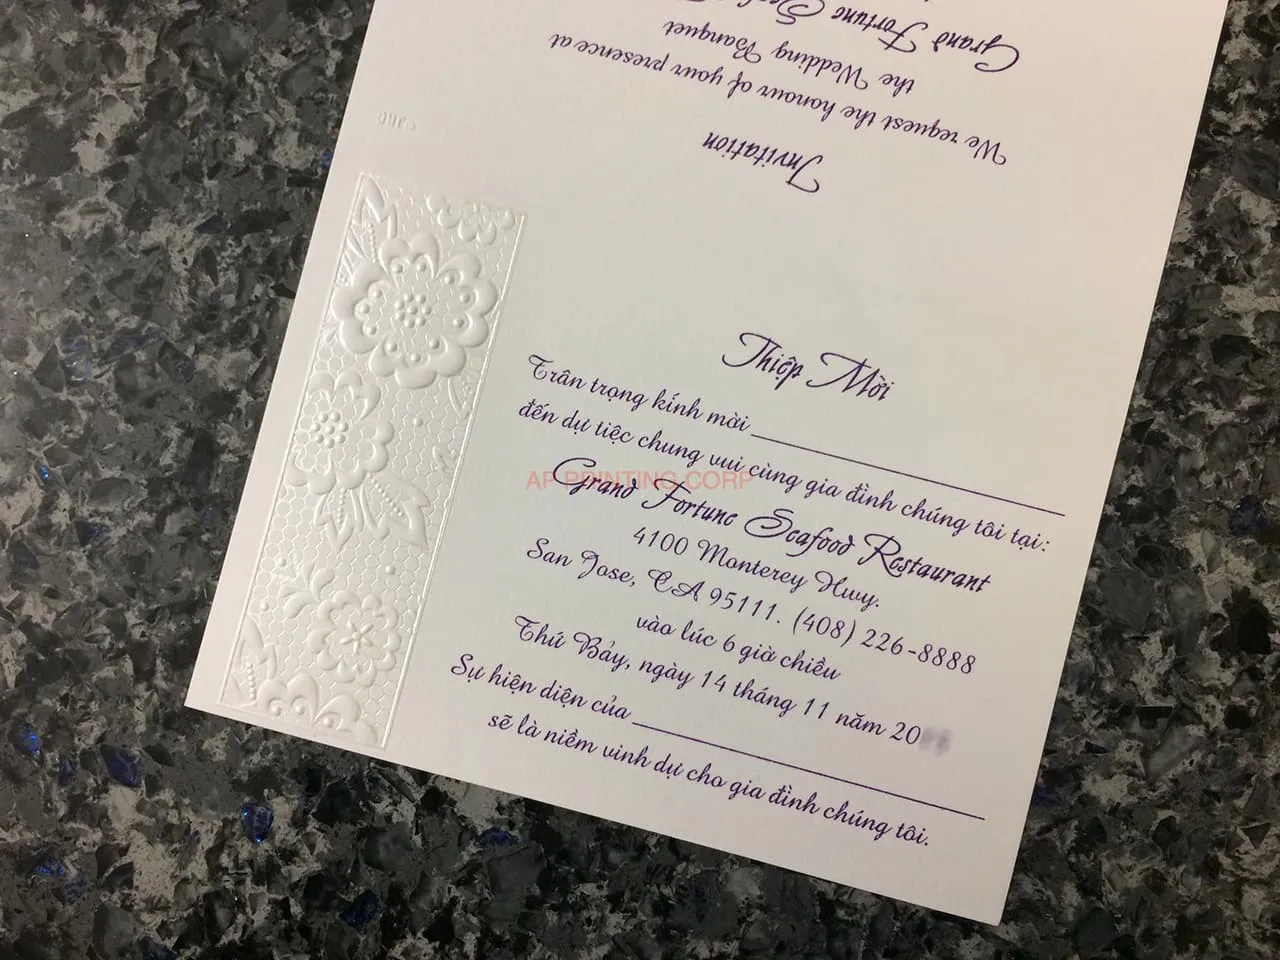 Grand Fortune
the Wedding Banquet
We request the honour of your presence at
Invitation
Thiệp Mời
Trân trọng kính mời
đến dự tiệc chung vui cùng gia đình chúng tôi tại:
AP PRINTING CORP
Grand Fortune Seafood Restaurant
4100 Monterey Hwy.
San Jose, CA 95111. (408) 226-8888
vào lúc 6 giờ chiều
Thứ Bảy, ngày 14 tháng 11 năm 20
Sự hiện diện của
sẽ là niềm vinh dự cho gia đình chúng tôi.